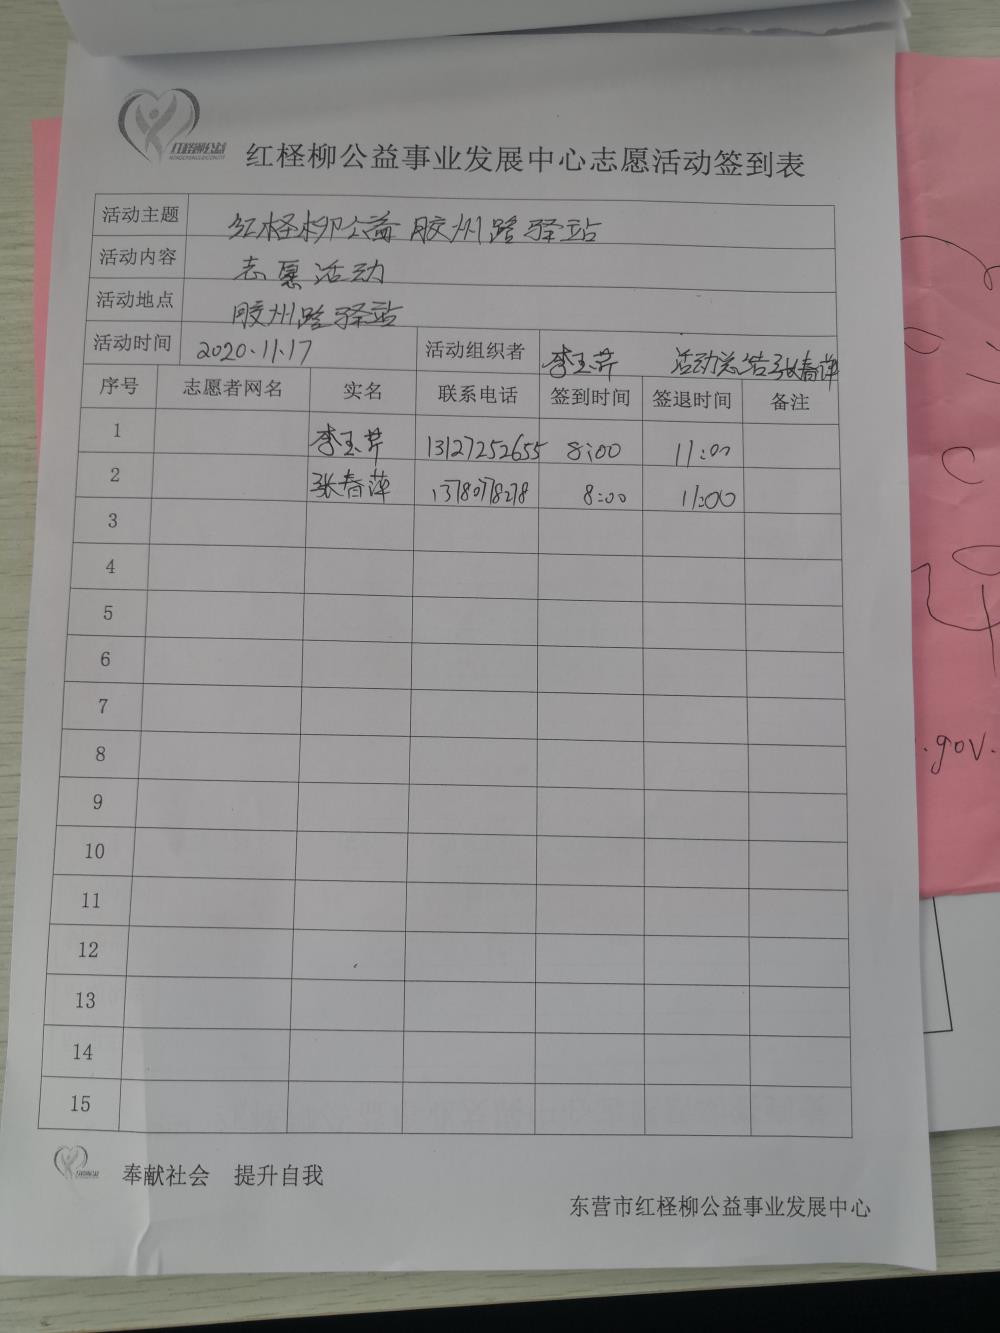 红柽柳公益
红柽柳公益事业发展中心志愿活动签到表
活动主题 红柽柳公益胶州路驿站
活动内容 志愿活动
活动地点 胶州路驿站
活动时间 2020.11.17 活动组织者 李玉芹 活动总结张春萍
序号 志愿者网名 实名 联系电话 签到时间 签退时间 备注
1 李玉芹 13127252655 8:00 11:00
2 张春萍 8:00 11:00
3
4
5
6
7
8
9
10
11
12
13
14
15
奉献社会 提升自我
东营市红柽柳公益事业发展中心
.gov.